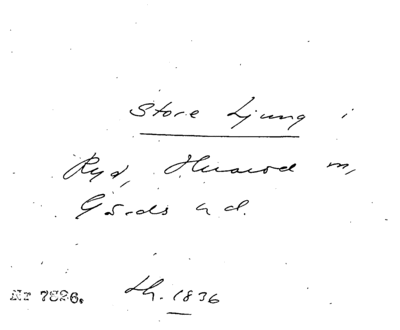 Store Ljung i
Ryd, Huaröd m,
Gärds hd.
Nr 7826. th. 1836